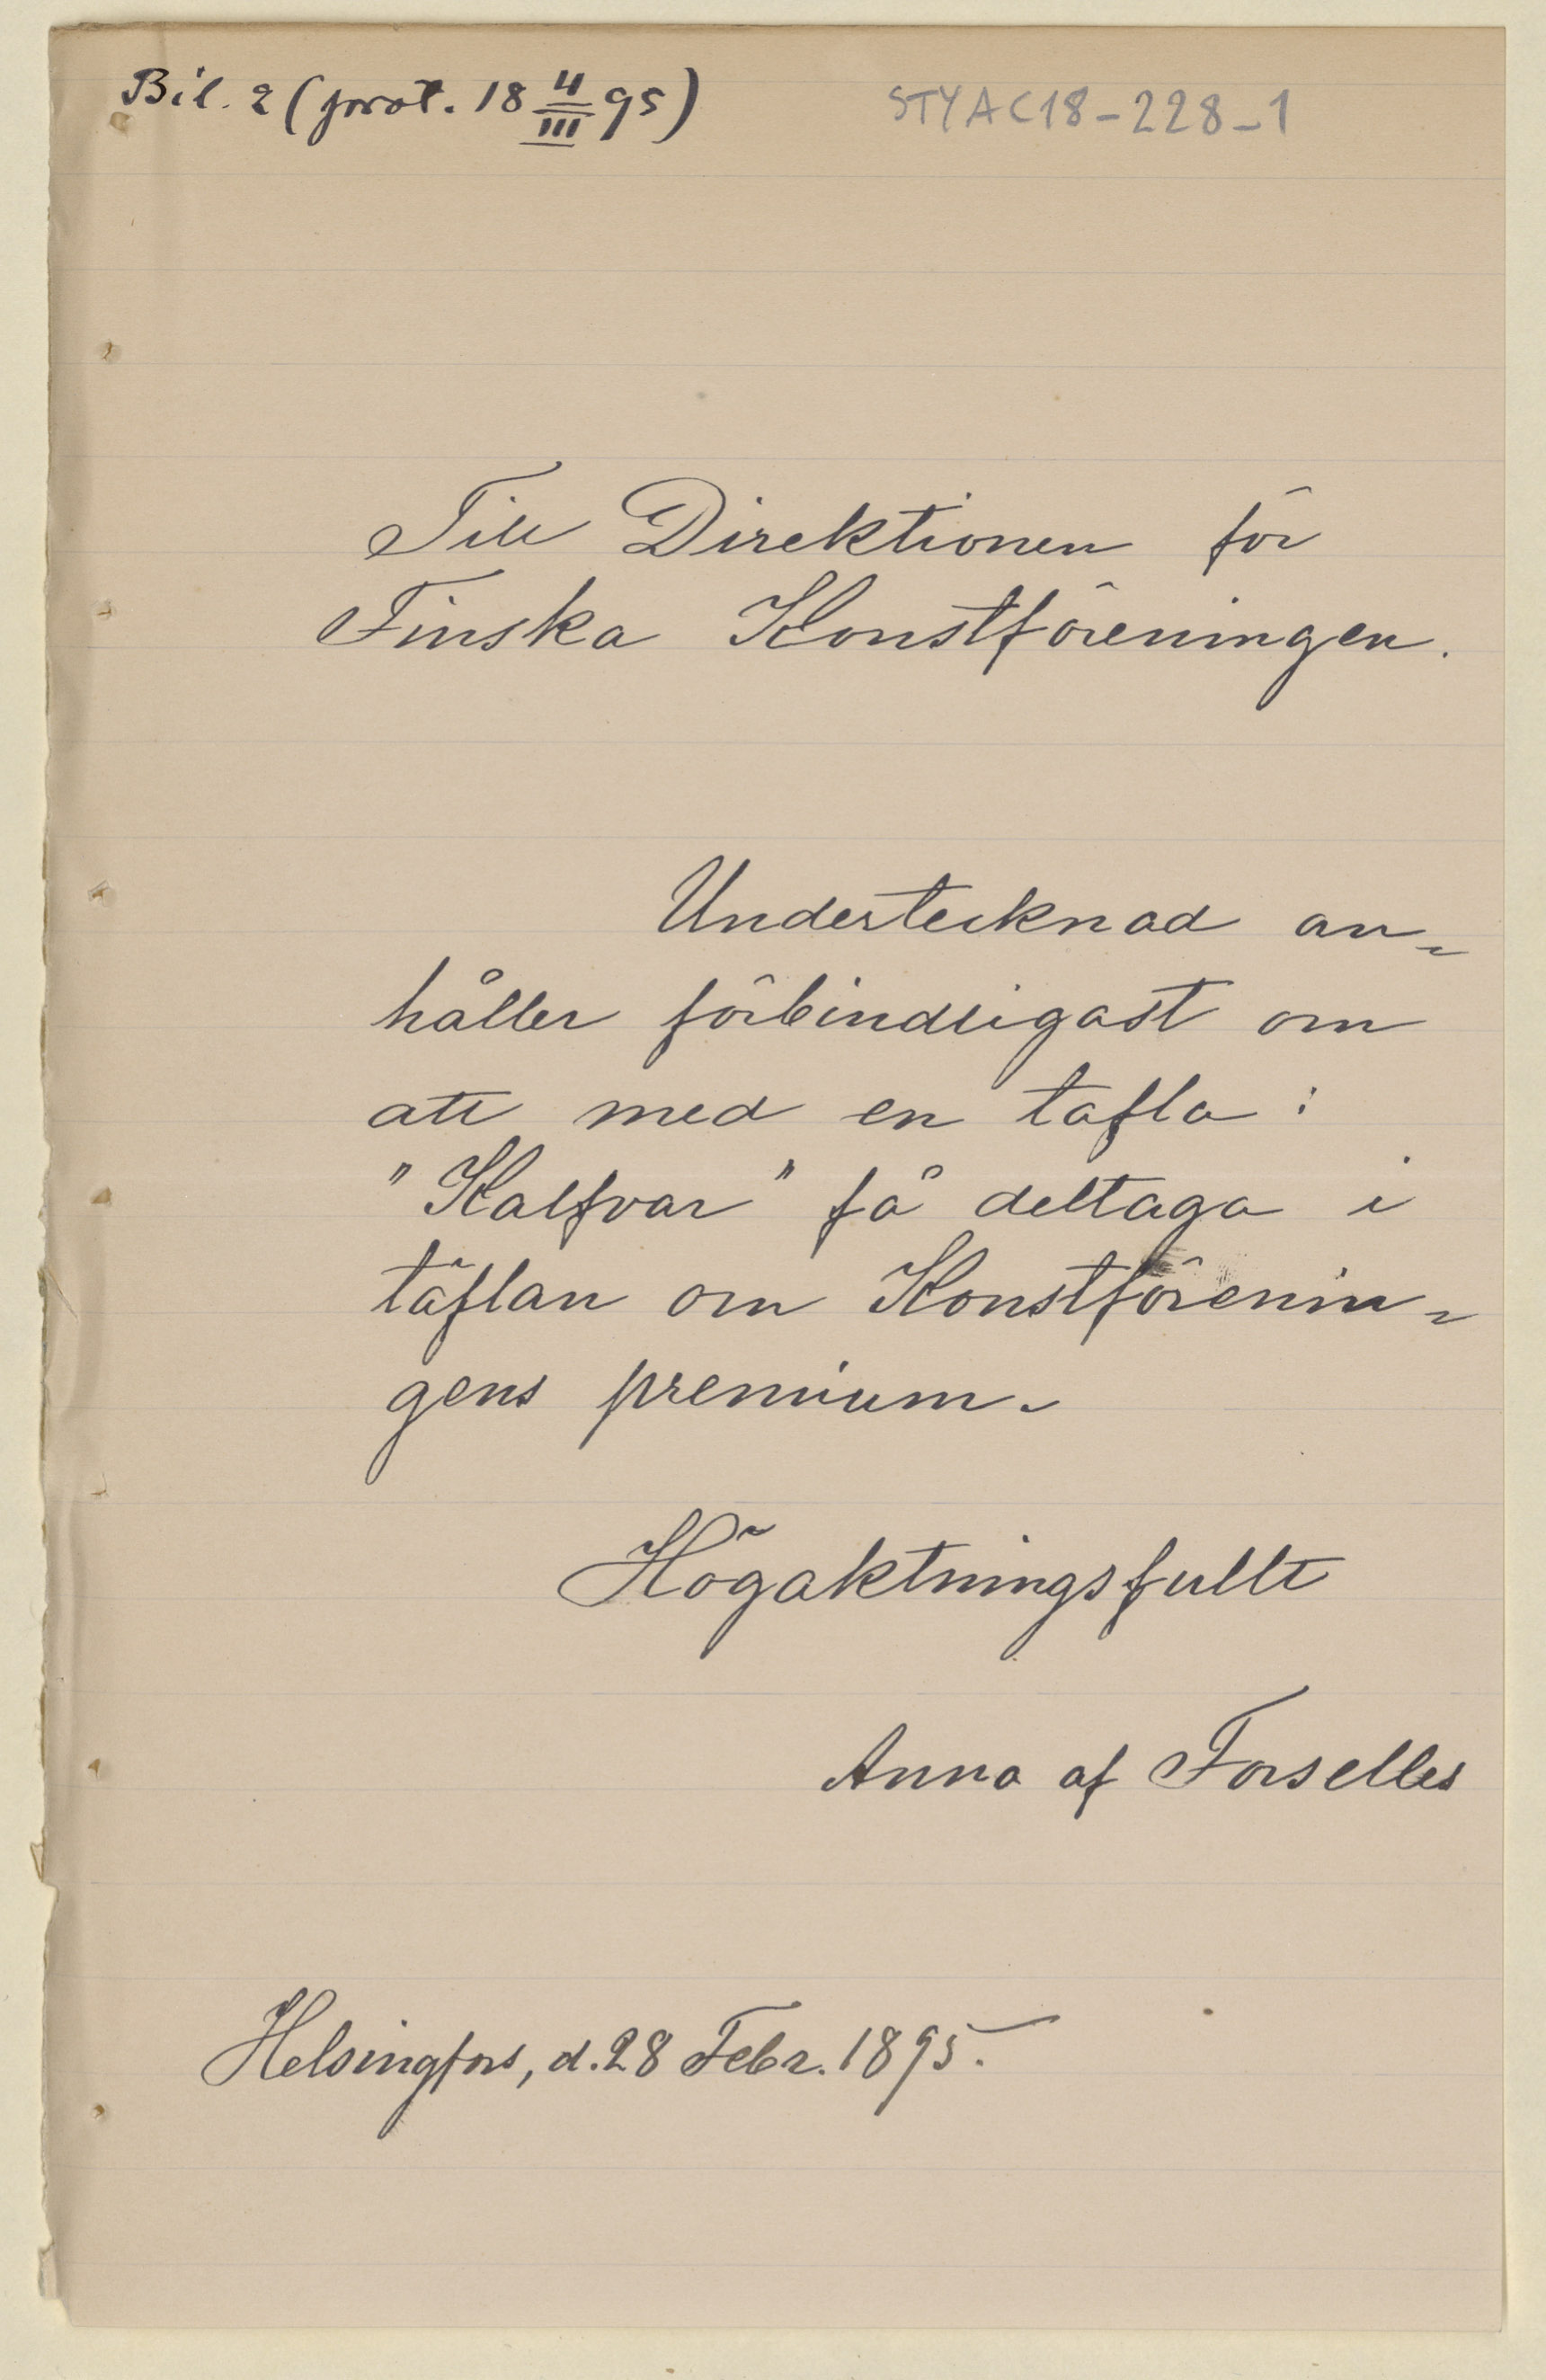 Bil. 2 (prot. 18 4/III 95)
STYA C18-228-1
Till Direktionen för
Finska Konstföreningen.
Undertecknad an-
håller förbindligast om
att med en tafla:
"Kalfvar" få deltaga i
täflan om Konstförenin-
gens premium.
Högaktningsfullt
Anna af Forselles
Helsingfors, d. 28 Febr. 1895.